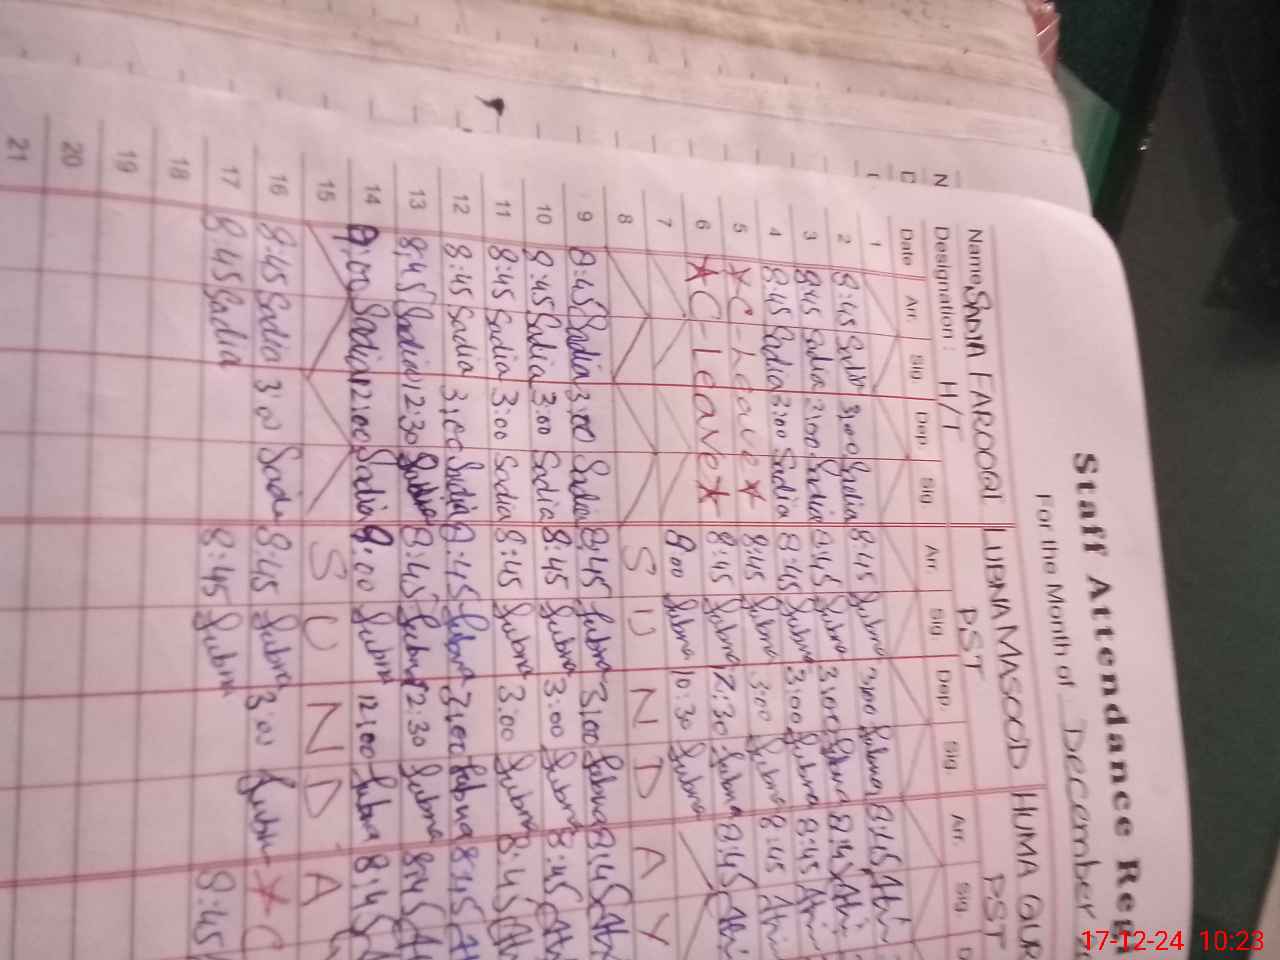 Staff Attendance Re
For the Month of December
Name SADIA FAROOQI LUBNA MASOOD HUMA
Designation: H/T PST PST
Date Arr. Sig. Dep. Sig. Arr. Sig. Dep. Sig. Arr. Sig.
1
2 8:45 Sadia 3:00 Sadia 8:45 Lubna 3:00 Lubna 8:45
3 8:45 Sadia 3:00 Sadia 8:45 Lubna 3:00 Lubna 8:45
4 8:45 Sadia 3:00 Sadia 8:45 Lubna 3:00 Lubna 8:45
5 C-Leave 8:45 Lubna 3:00 Lubna 8:45
6 C-Leave 8:45 Lubna 12:30 Lubna 8:45
7 9:00 Lubna 10:30 Lubna
8 S U N D A Y
9 8:45 Sadia 3:00 Sadia 8:45 Lubna 3:00 Lubna 8:45
10 8:45 Sadia 3:00 Sadia 8:45 Lubna 3:00 Lubna 8:45
11 8:45 Sadia 3:00 Sadia 8:45 Lubna 3:00 Lubna 8:45
12 8:45 Sadia 3:00 Sadia 8:45 Lubna 3:00 Lubna 8:45
13 8:45 Sadia 12:30 8:45 Lubna 12:30 Lubna 8:45
14 9:00 Sadia 12:00 Sadia 9:00 Lubna 12:00 Lubna 8:45
15 S U N D A
16 8:45 Sadia 3:00 Sadia 8:45 Lubna 3:00 Lubna C
17 8:45 Sadia 8:45 Lubna 8:45
18
19
20
21
17-12-24 10:23